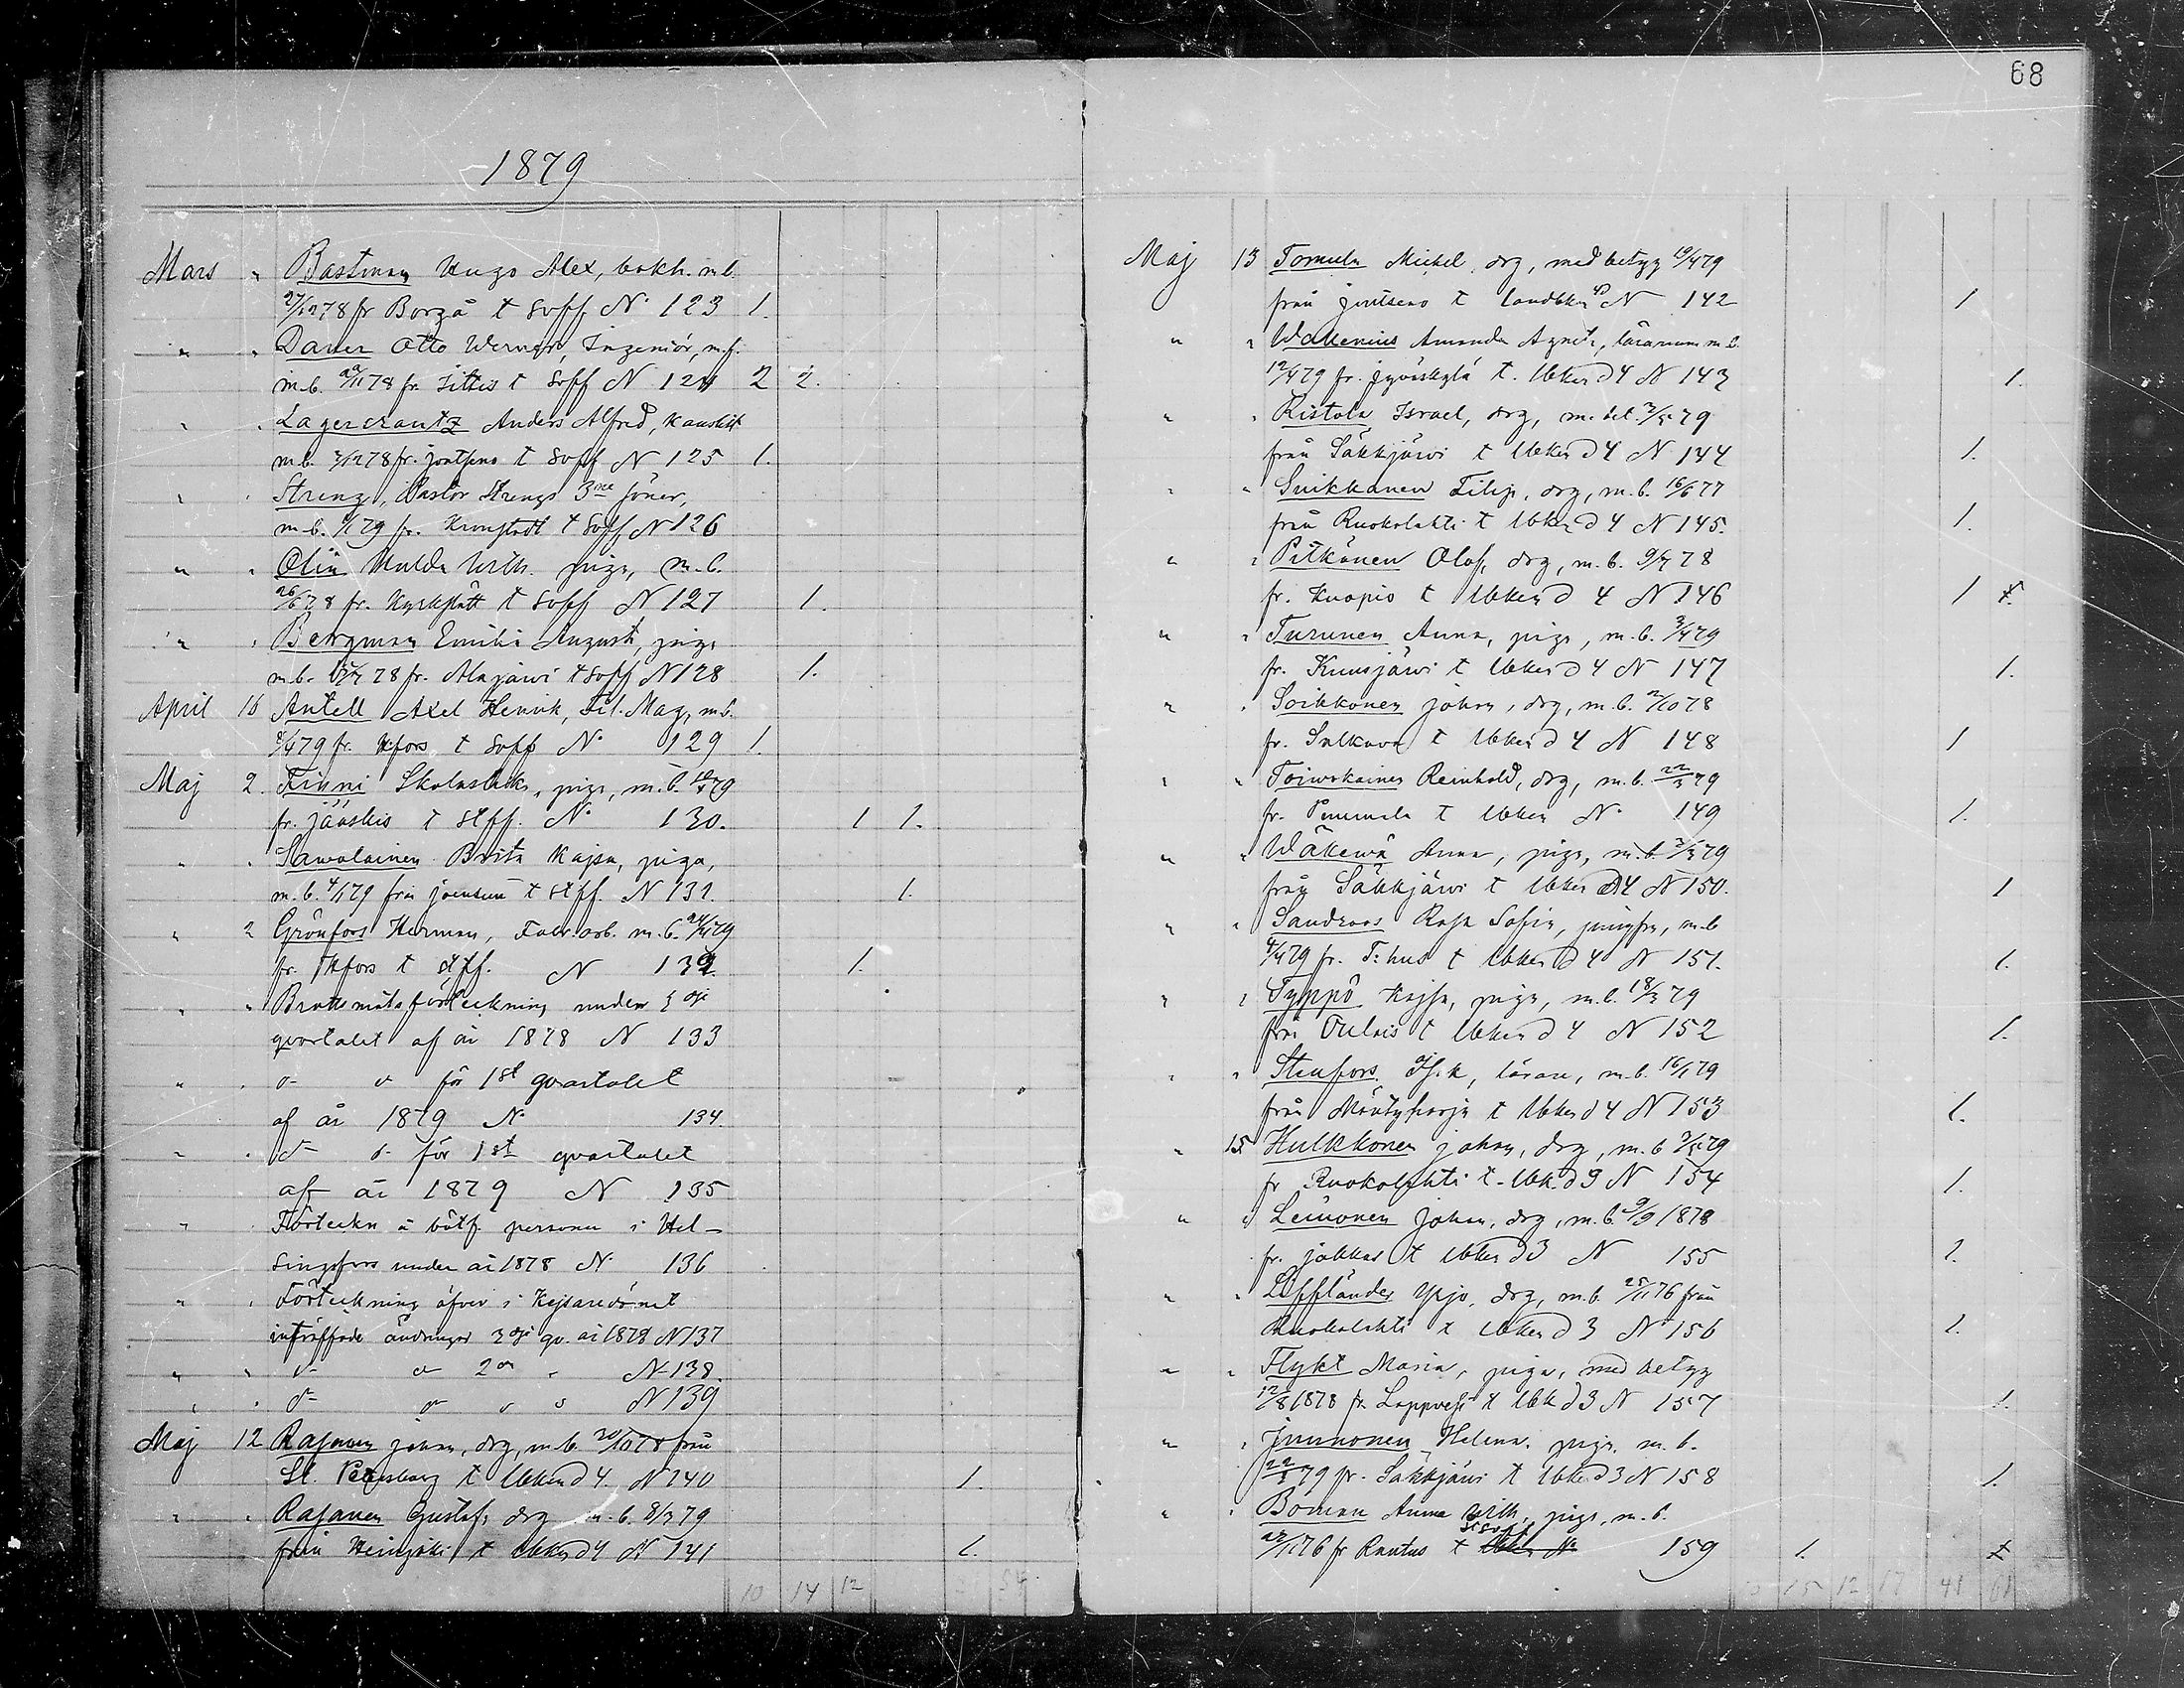 68
1879
Mars " Bastman Hugo Alex, bokh. m.b.
27/12 78 fr Borgå t Soff N. 123 1.
" " Dauer Otto Werner, Ingeniör, m.f.
m.b. 22/11 78 fr. Sittis t Soff N 124 2 2.
" " Lagercrantz Anders Alfred, Kanslist
m.b. 3/12 78 fr. Joutseno t Soff N 125 1.
" " Streng, Pastor Strengs 3ne söner,
m.b. 1/1 79 fr. Kronstadt t Soff N 126
" " Olin Hulda Wilh. piga, m.b.
26/6 78 fr. Kyrkslätt t Soff N 127 1.
" " Bergman Emilia August, piga
m.b. 78 fr. Alajärvi t Soff N 128 1.
April 16 Antell Axel Henrik, Fil. Mag, m.b.
8/4 79 fr. Hfors t Soff N. 129 1.
Maj 2. Finni Skolastika, piga, m.b. 79
fr. Jääskis t stff. N. 130. 1 1.
" " Sawolainen Brita Kajsa, piga,
m.b. 4/1 79 från Joensuu t stff. N 131. 1.
" 2 Grönfors Herman, Fabr.arb. m.b. 24/4 79
fr. Hfors t stff. N 132. 1.
" " Brottmålsförteckning under 3dje
qvartalet af år 1878 N 133
" " d- o för 1st qvartalet
af år 1879 N. 134.
" " d- o- för 1st qvartalet
af år 1879 N 135
" " Förteckn å bötf. personer i Hel-
singfors under år 1878 N. 136
" " Förteckning öfver i Kejsaredömet
inträffade ändringar 3dje qv. år 1878 N 137
" " d- o 2a " N 138.
" " d- o " " N 139
Maj 12 Rasanen Johan, drg, m.b. 20/10 78 från
St. Petersburg t Ubken d 4. N 140 1.
" " Rasanen Gustaf, drg m.b. 8/3 79
från Heinjoki t Ubken d 4 N 141 1.
10 14 12 54
Maj 13 Tomula Mickel, drg, med betyg 19/4 79
från Joutseno t Landtken N 142 1
" " Wallenius Amanda Agneta, lärarinna m.b.
12/4 79 fr. Jyväskylä t. Ubken d 4 N 143 1.
" " Ristola Israel, drg, m. bet. 79
från Säkkjärwi t Ubken d 4 N 144 1.
" " Suikkanen Filip, drg, m.b. 16/6 77
från Ruokolahti t Ubken d 4 N 145. 1.
" " Pitkänen Olof, drg, m.b. 9/7 78
fr. Kuopio t Ubken d 4 N 146 1
" " Turunen Anna, piga, m.b. 3/4 79
fr. Kuusjärwi t Ubken d 4 N 147 1.
" " Soikkonen Johan, drg, m.b. 2/10 78
fr. Sulkava t Ubken d 4 N 148 1
" " Toiwokainen Reinhold, drg, m.b. 22/3 79
fr. Pummala t Ubken N. 149 1.
" " Wäkewä Anna, piga, m.b. 79
från Säkkjärwi t Ubken d 4 N 150. 1
" " Sandroos Rosa Sofia, jungfru, m.b
4/4 79 fr. T:hus t Ubken d 4 N 151. 1.
" " Typpö Kajsa, piga, m.b. 18/3 79
från Oulais t Ubken d 4 N 152 1.
" " Stenfors lärare, m.b. 16/1 79
från Mäntyharju t Ubken d 4 N 153 1.
" 15 Hulkkonen Johan, drg, m.b 79
fr Ruokolahti t. Ubk. d 3 N 154 1.
" " Leinonen Johan, drg, m.b. 9/9 1878
fr. Jokkas t Ubken d 3 N 155 1.
" " Löffländer Yrjo, drg, m.b. 25/11 76 från
Ruokolahti t Ubken d 3 N 156 1.
" " Flykt Maria, piga, med betyg
12/8 1878 fr. Lappvesi t Ubk d 3 N 157 1.
" " Junnonen Helena, piga, m.b.
22/3 79 fr. Säkkjärwi t Ubken d 3 N 158 1.
" " Boman Anna Wilh., piga, m.b.
76 fr Rautus t Soff 159 1.
15 12 17 41 61